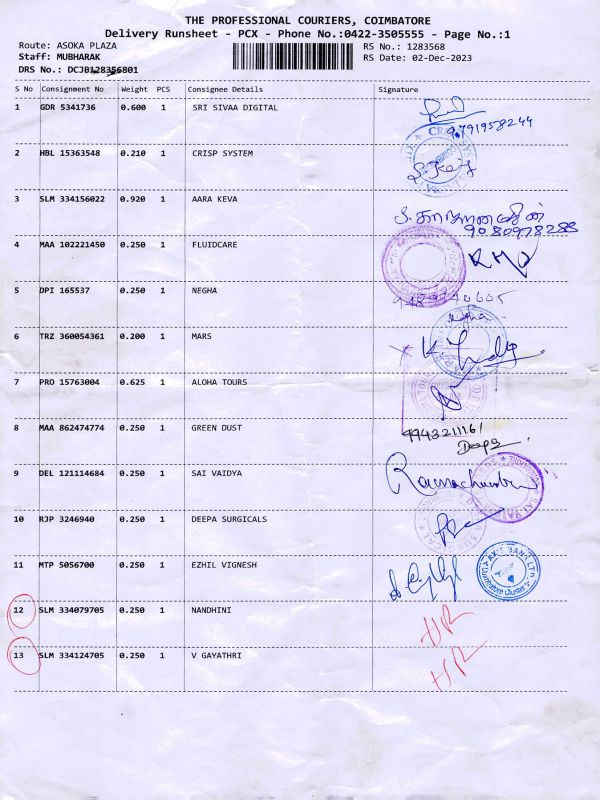 THE PROFESSIONAL COURIERS, COIMBATORE
Delivery Runsheet - PCX - Phone No.:0422-3505555 - Page No.:1
Route: ASOKA PLAZA RS No.: 1283568
Staff: MUBHARAK RS Date: 02-Dec-2023
DRS No.: DCJB128356801
S No Consignment No Weight PCS Consignee Details Signature
1 GDR 5341736 0.600 1 SRI SIVAA DIGITAL
9791958244
2 HBL 15363548 0.210 1 CRISP SYSTEM
3 SLM 334156022 0.920 1 AARA KEVA
9080978288
4 MAA 102221450 0.250 1 FLUIDCARE
5 DPI 165537 0.250 1 NEGHA
6 TRZ 360054361 0.200 1 MARS
7 PRO 15763004 0.625 1 ALOHA TOURS
8 MAA 862474774 0.250 1 GREEN DUST 9943211161
Deepa
9 DEL 121114684 0.250 1 SAI VAIDYA
10 RJP 3246940 0.250 1 DEEPA SURGICALS
11 MTP 5056700 0.250 1 EZHIL VIGNESH
AXIS BANK LTD.
12 SLM 334079705 0.250 1 NANDHINI
13 SLM 334124705 0.250 1 V GAYATHRI